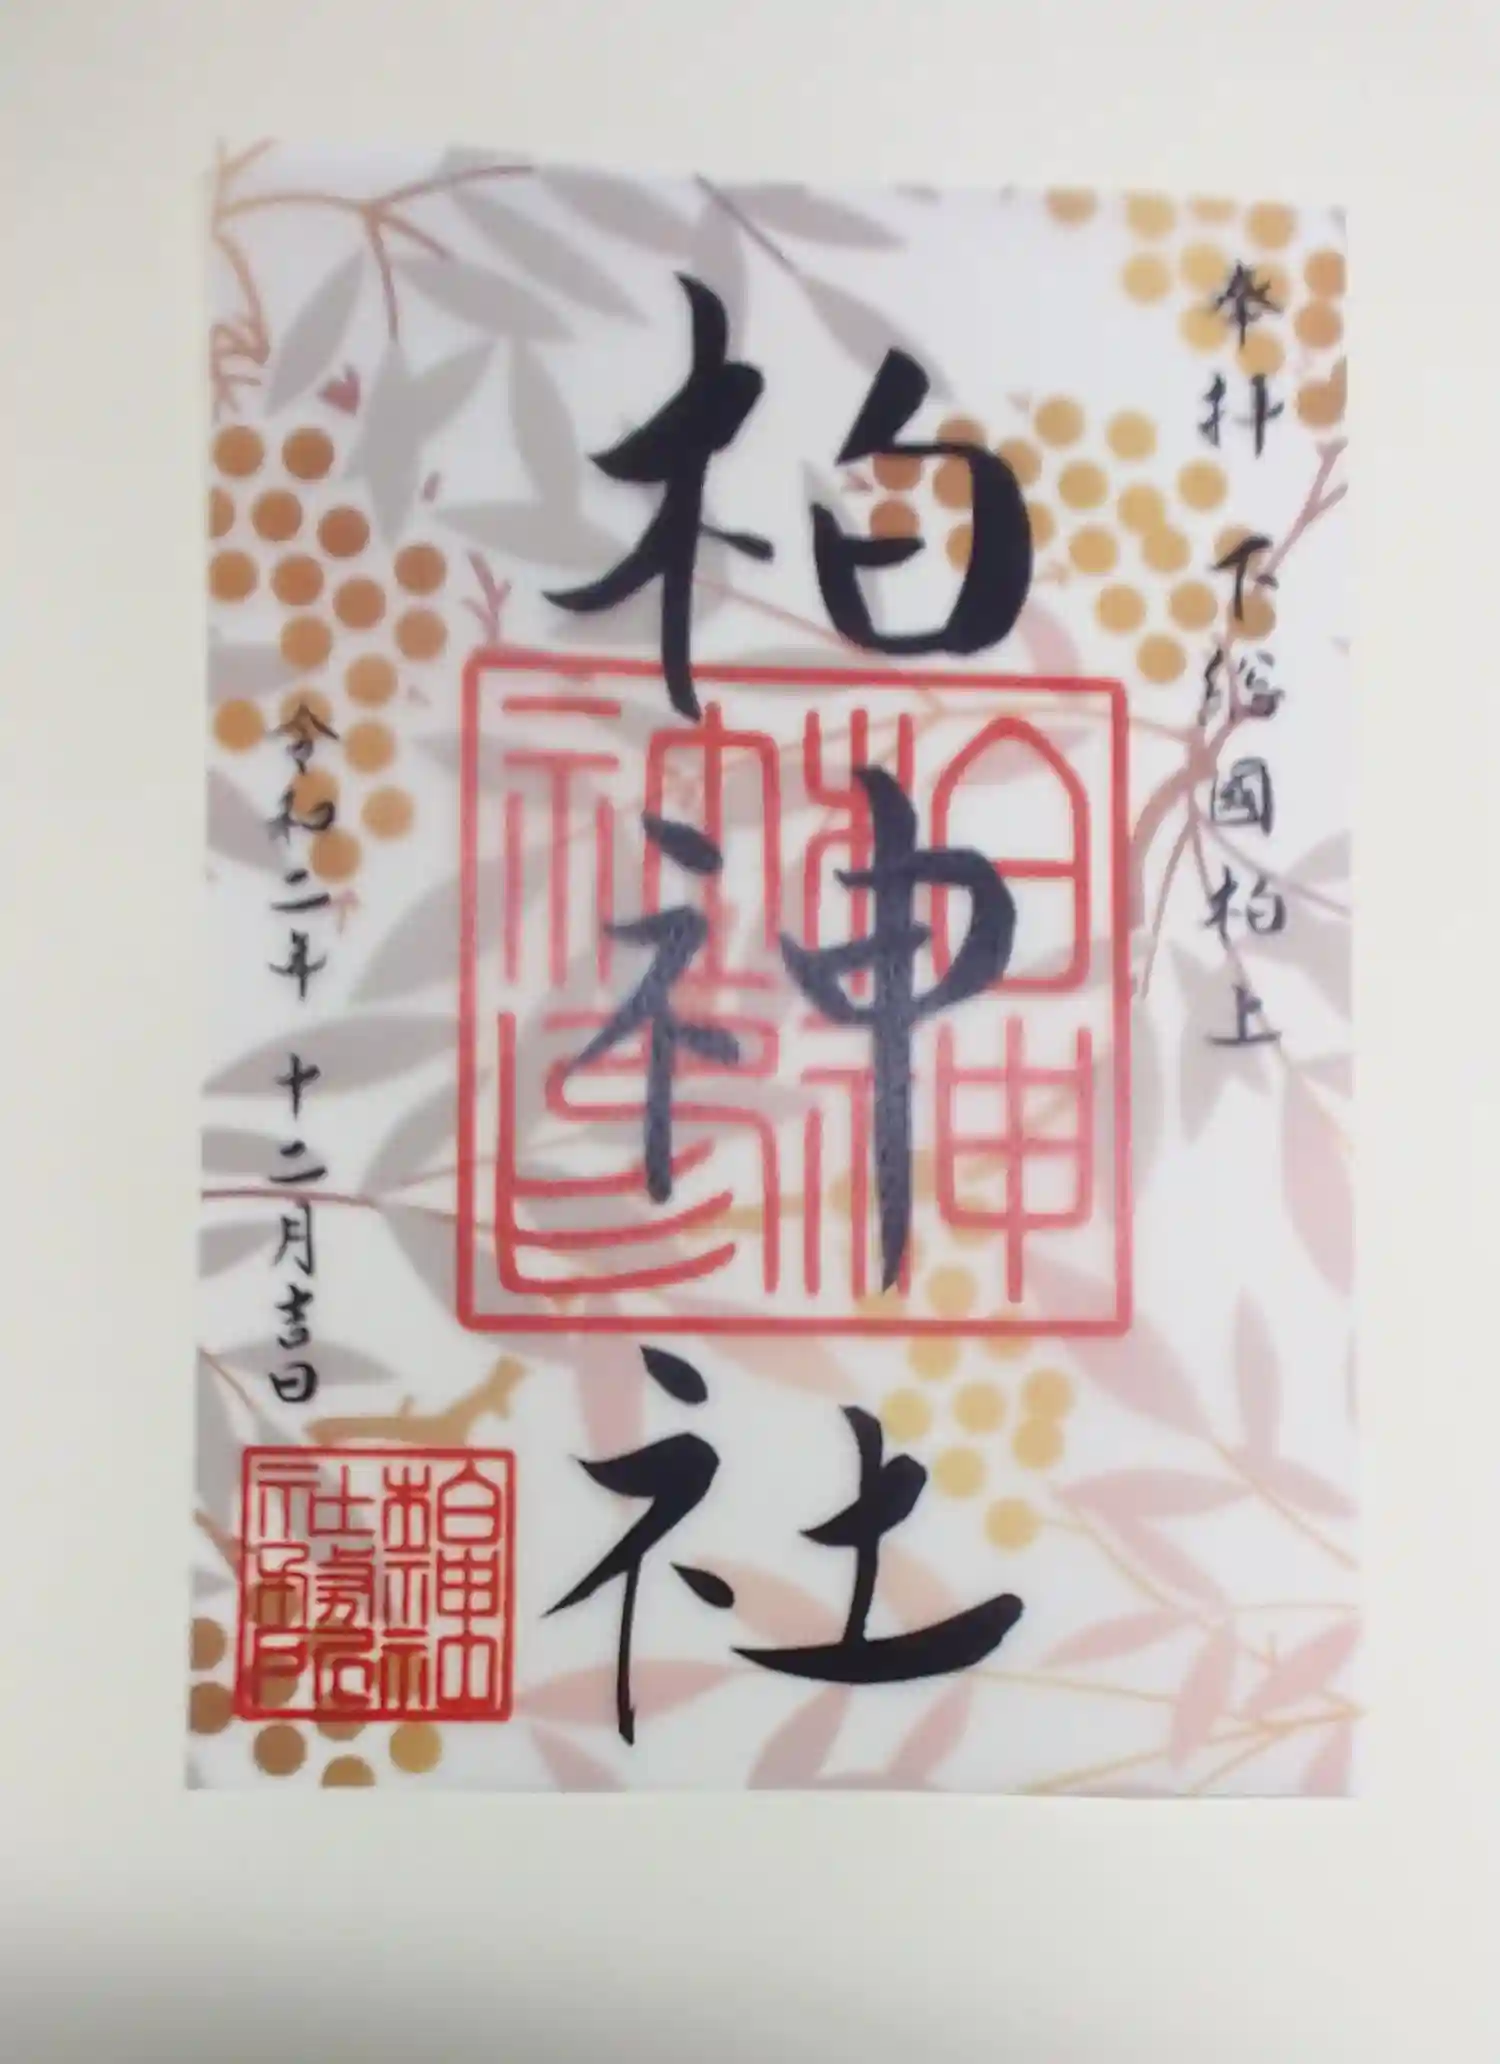 奉拝 下総國柏上
柏神社
令和二年 十二月吉日
柏神社
社務所